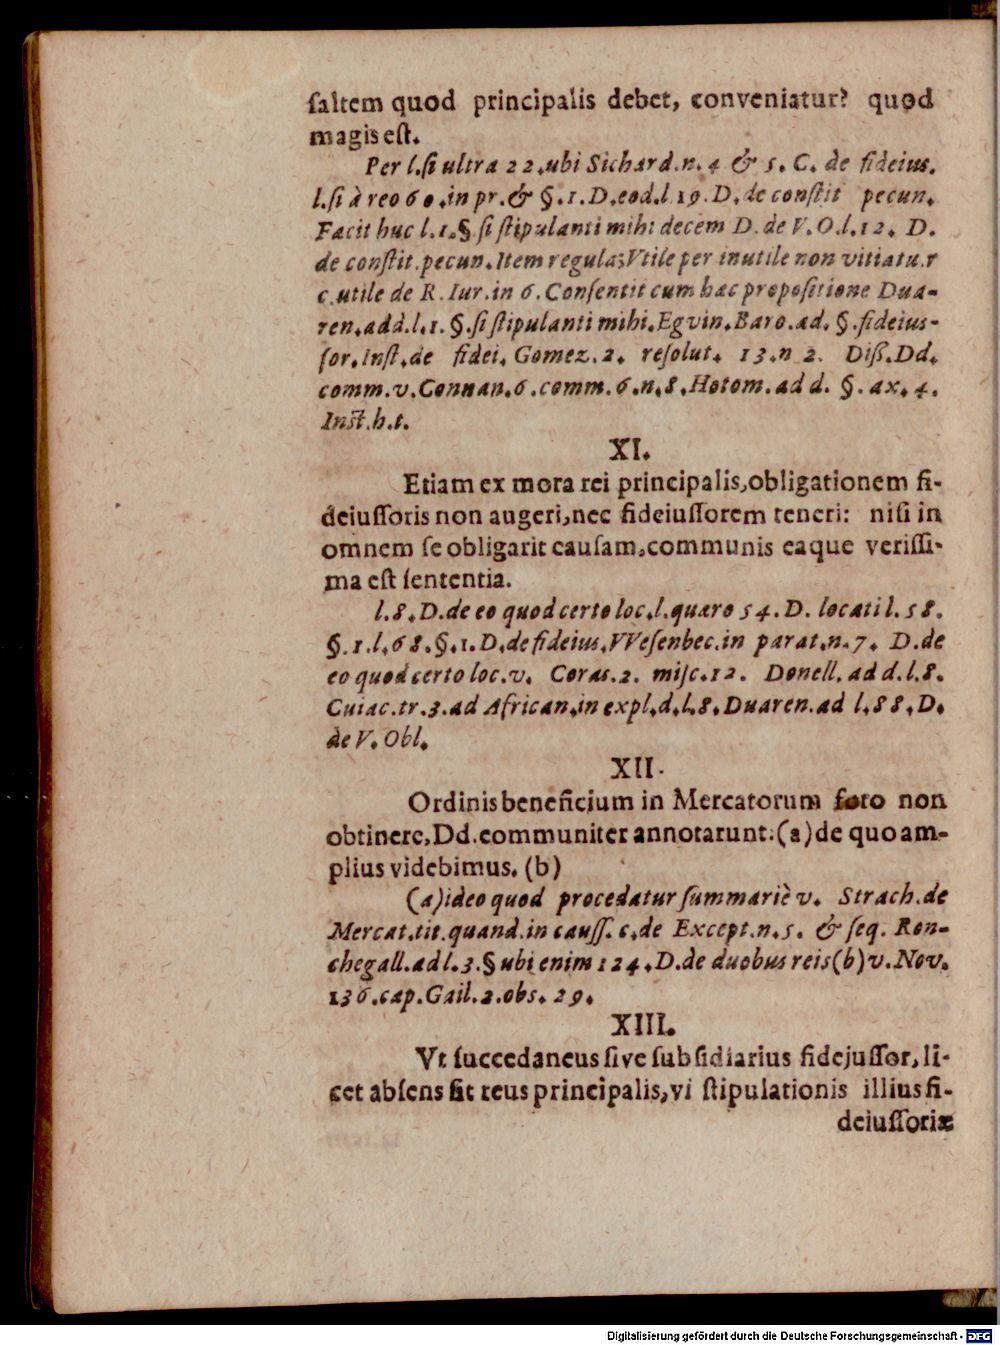 ſaltem quod principalis debet, conveniatur? quod
magis eſt.
Per l. ſi ultra 22. ubi Sichard. n. 4 & 5. C. de fideius.
l. ſi à reo 60. in pr. & §. 1. D. eod. l 19. D. de conſtit pecun.
Facit huc l. 1. § ſi ſtipulanti mihi decem D. de V. O. l. 12. D.
de conſtit. pecun. Item regula: Vtile per inutile non vitiatur
c. utile de R. Iur. in 6. Conſentit cum hac propoſitione Dua-
ren. add. l. 1. §. ſi ſtipulanti mihi. Egvin. Baro. ad. §. fideiuſ-
ſor. Inſt. de fidei. Gomez. 2. reſolut. 13. n 2. Diſſ. Dd.
comm. v. Connan. 6. comm. 6. n. 8. Hotom. ad d. §. ax. 4.
Inſt. h. t.
XI.
Etiam ex mora rei principalis, obligationem fi-
deiuſſoris non augeri, nec fideiuſſorem teneri: niſi in
omnem ſe obligarit cauſam, communis eaque veriſſi-
ma eſt ſententia.
l. 8. D. de eo quod certo loc. l. quæro 54. D. locati l. 58.
§. 1. l. 68. §. 1. D. de fideius. VVeſenbec. in parat. n. 7. D. de
eo quod certo loc. v. Coras. 2. miſc. 12. Donell. ad d. l. 8.
Cuiac. tr. 3. ad African. in expl. d. l. 8. Duaren. ad l. 88. D.
de V. Obl.
XII.
Ordinis beneficium in Mercatorum foro non
obtinere, Dd. communiter annotarunt: (a) de quo am-
plius videbimus. (b)
(a) ideo quod procedatur ſummariè v. Strach. de
Mercat. tit. quand. in cauſſ. c. de Except. n. 5. & ſeq. Ron-
chegall. ad l. 3. § ubi enim 124. D. de duobus reis (b) v. Nov.
136. cap. Gail. 2. obs. 29.
XIII.
Vt ſuccedaneus ſive ſubſidiarius fidejuſſor, li-
cet abſens ſit reus principalis, vi ſtipulationis illius fi-
deiuſſoriæ
Digitalisierung gefördert durch die Deutsche Forschungsgemeinschaft - DFG